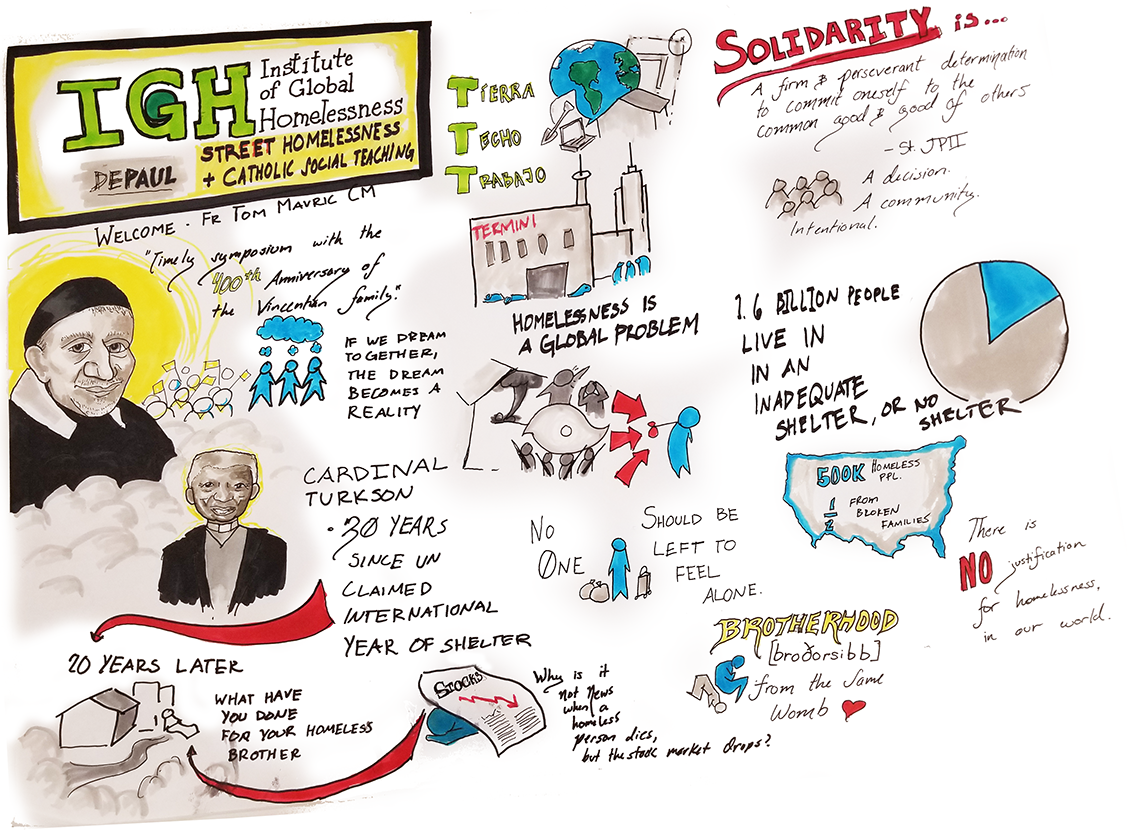 IGH
Institute
of Global
Homelessness
DEPAUL
STREET HOMELESSNESS
+ CATHOLIC SOCIAL TEACHING
WELCOME - FR TOM MAVRIC CM
"Timely symposium with the
400th Anniversary of
the Vincentian family."
IF WE DREAM
TO GETHER,
THE DREAM
BECOMES A
REALITY
CARDINAL
TURKSON
• 30 YEARS
SINCE UN
CLAIMED
INTERNATIONAL
YEAR OF SHELTER
20 YEARS LATER
WHAT HAVE
YOU DONE
FOR YOUR HOMELESS
BROTHER
TIERRA
TECHO
TRABAJO
TERMINI
HOMELESSNESS IS
A GLOBAL PROBLEM
NO
ONE
SHOULD BE
LEFT TO
FEEL
ALONE.
STOCKS
Why is it
not news
when a
homeless
person dies,
but the stock market drops?
SOLIDARITY is...
A firm & perseverant determination
to commit oneself to the
common good & good of others
- St. JPII
A decision.
A community.
Intentional.
1.6 BILLION PEOPLE
LIVE IN
IN AN
INADEQUATE
SHELTER, OR NO
SHELTER
500K HOMELESS
PPL.
1/2 FROM
BROKEN
FAMILIES
There is
NO justification
for homelessness,
in our world.
BROTHERHOOD
[broðorsibb]
from the same
Womb